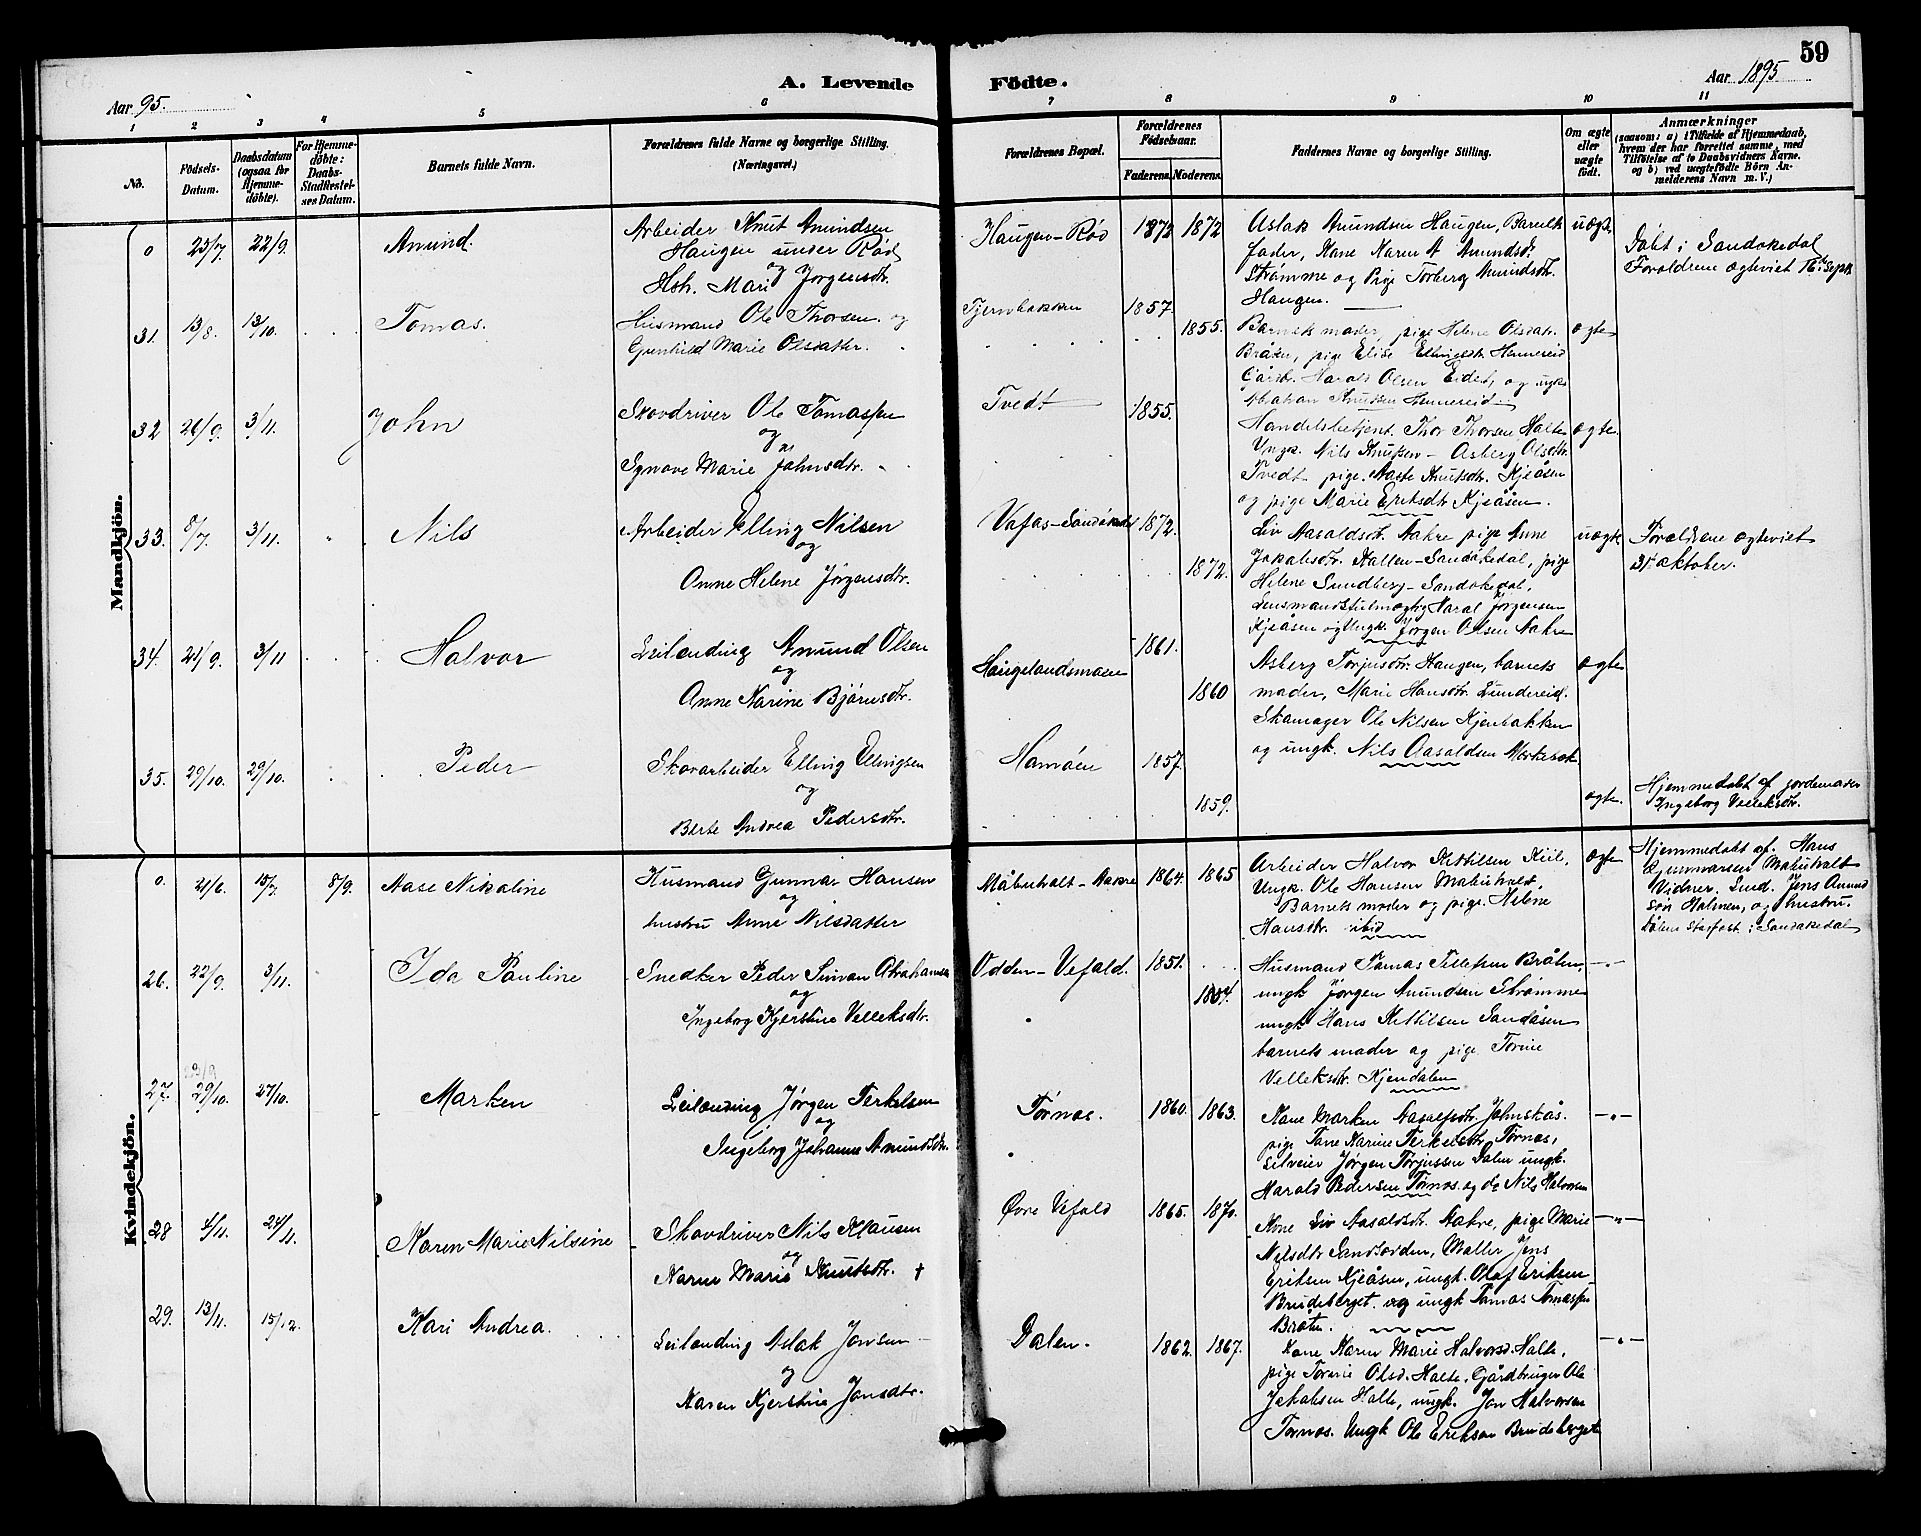 59
A. Levende Födte.
Aar 95.
Aar 1895
1 2 3 4 5 6 7 8 9 10 11
No.
Födsels-Datum.
Daabsdatum (ogsaa for Hjemmedöbte).
For Hjemmedöbte: Daabs-Stadfæstelses Datum.
Barnets fulde Navn.
Forældrenes fulde Navne og borgerlige Stilling.
(Næringsvei.)
Forældrenes Bopæl.
Forældrenes Födselsaar.
Faderens. Moderens.
Faddernes Navne og borgerlige Stilling.
Om ægte eller uægte födt.
Anmærkninger
(saasom: a) i Tilfælde af Hjemmedaab, hvem der har forrettet samme, med Tilföielse af to Daabsvidners Navne, og b) ved uægtefödte Börn Anmelderens Navn m. V.)
Mandkjön.
0 25/7. 22/9. Amund.
Arbeider Knut Amundsen
Haugen under Rød
og
Hsh. Mari Jørgensdtr.
Haugen-Rød 1872 1872
Aslak Amundsen Haugen, Barnets
fader, Kone Karen A Amundsdtr.
Strømme og Pige Torberg Amundsdtr.
Haugen.
uægte.
Døbt i Sandøkedal
Forældrene ægteviet 16de Septb.
31. 13/8. 13/10. Tomas.
Husmand Ole Thorsen og
Gunhild Marie Olsdatter.
Tjernbakken 1857. 1855.
Barnets moder, pige Helene Olsdatr.
Bråten, pige Elise Ellingsdtr. Hennereid
Gårdbr. Harald Olsen Eidet, og ungk.
Knudsen Hennereid
ægte
32 26/9. 3/11. John
Skovdriver Ole Tomassen
og
Synove Marie Johnsdtr.
Tvedt 1855.
Handelsbetjent Thor Thorsen Halte
Ungk. Nils Knutsen - Asberg Olsdtr.
Tvedt pige. Aaste Knutsdtr. Kjeåsen
og pige Marie Eriksdtr Kjeåsen.
ægte.
33. 8/7. 3/11. Nils
Arbeider Elling Nilsen
og
Anne Helene Jørgensdtr.
Vafos-Sandøkedal 1872. 1872.
Liv Aasoldsdtr. Aakre pige Anne
Jakobsdtr. Hallen-Sandøkedal, pige
Helene Sundberg-Sandøkedal,
Lensmandsfulmægtig Haral Jørgensen
Kjeåsen og Ungk. Jørgen Olsen Aakre
uægte
Forældrene ægteviet
31. oktober.
34. 21/9. 3/11 Halvor
Leilænding Amund Olsen
og
Anne Karine Bjørnsdtr.
Haugelandsmoen 1861. 1860
Asberg Torjusdtr. Haugen, barnets
moder, Marie Hansdtr. Lundereid.
Skomager Ole Nilsen Kjenbakken
og ungk. Nils Aasoldsen Merkebæk
ægte
35. 29/10. 29/10. Peder
Skovarbeider Elling Ellingsen
og
Berte Andrea Pedersdtr.
Hamøen 1857. 1859.
ægte.
Hjemmedøbt af jordemoder
Ingeborg Velleksdtr.
Kvindekjön.
0. 21/6. 15/7. 8/9. Aase Nikoline
Husmand Gunnar Hansen
og
hustru Anne Nilsdatter
Måbuhalt-Aakre 1864. 1865
Arbeider Halvor Kettilsen Kiil,
Ungk. Ole Hansen Måbuhalt,
Barnets moder og pige. Helene
Hansdtr. ibid
ægte
Hjemmedøbt af. Hans
Gunnarsen Måbuhalt
Vidner. Smd. Jens Amund
søn Holmen, og hustru.
Dåben stadfæst. i Sandøkedal
26. 22/9. 3/11. Ida Pauline
Snedker Peder Simon Abrahamsen
og
Ingeborg Kjerstine Velleksdtr.
Odden-Vefald. 1851.
Husmand Tomas Tellefsen Bråten,
ungk Jørgen Amundsen Strømme
ungk Hans Kettilsen Sandåsen
barnets moder og pige. Torine
Velleksdtr. Kjendalen
-"-
27. 29/9 29/10. 27/10. Marken
Leilænding Jørgen Terkelsen
og
Ingeborg Johanne Amundsdtr.
Tørnos. 1860. 1863.
Kone Marken Aasolfsdtr. Johnskås.
pige Tone Karine Terkelsdtr. Tørnos,
selveier Jørgen Torjussen Dalen ungk.
Harald Pedersen Tørnos. og do Nils Halvorsen
-"-
28 4/11. 24/11. Karen Marie Nilsine
Skovdriver Nils Klausen
og
Karen Marie Knutsdtr. †
Øvre Vefald 1865. 1870.
Kone Liv Aasoldsdtr. Aakre, pige Marie
Nilsdtr Sandsodden, Møller Jens
Eriksen Kjeåsen, ungk. Olaf Eriksen
Brudeberget. og ungk Tomas Tomassen
Bråten.
-"-
29. 13/11. 15/12. Kari Andrea.
Leilænding Aslak Jonsen
og
Karen Kjerstine Jonsdtr.
Dalen. 1862. 1867.
Kone Karen Marie Halvorsd. Halte,
pige Torine Olsd. Halte, Gårdbruger Ole
Jakobsen Halte, ungk. Jon Halvorsen
Tornos. Ungk Ole Eriksen Brudeberget
-"-